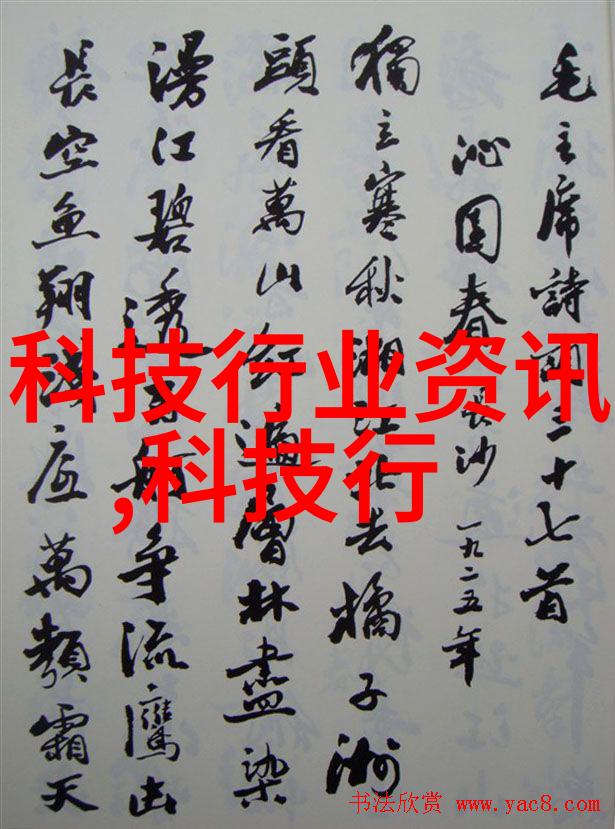 科技行业资讯
,科技行
毛主席詩詞三十七首
沁园春 長沙 一九二五年
獨立寒秋湘江北去橘子洲
頭看萬山红遍層林盡染
漫江碧透百舸争流鷹击
長空鱼翔浅底萬類霜天
书法欣赏 www.yac8.com